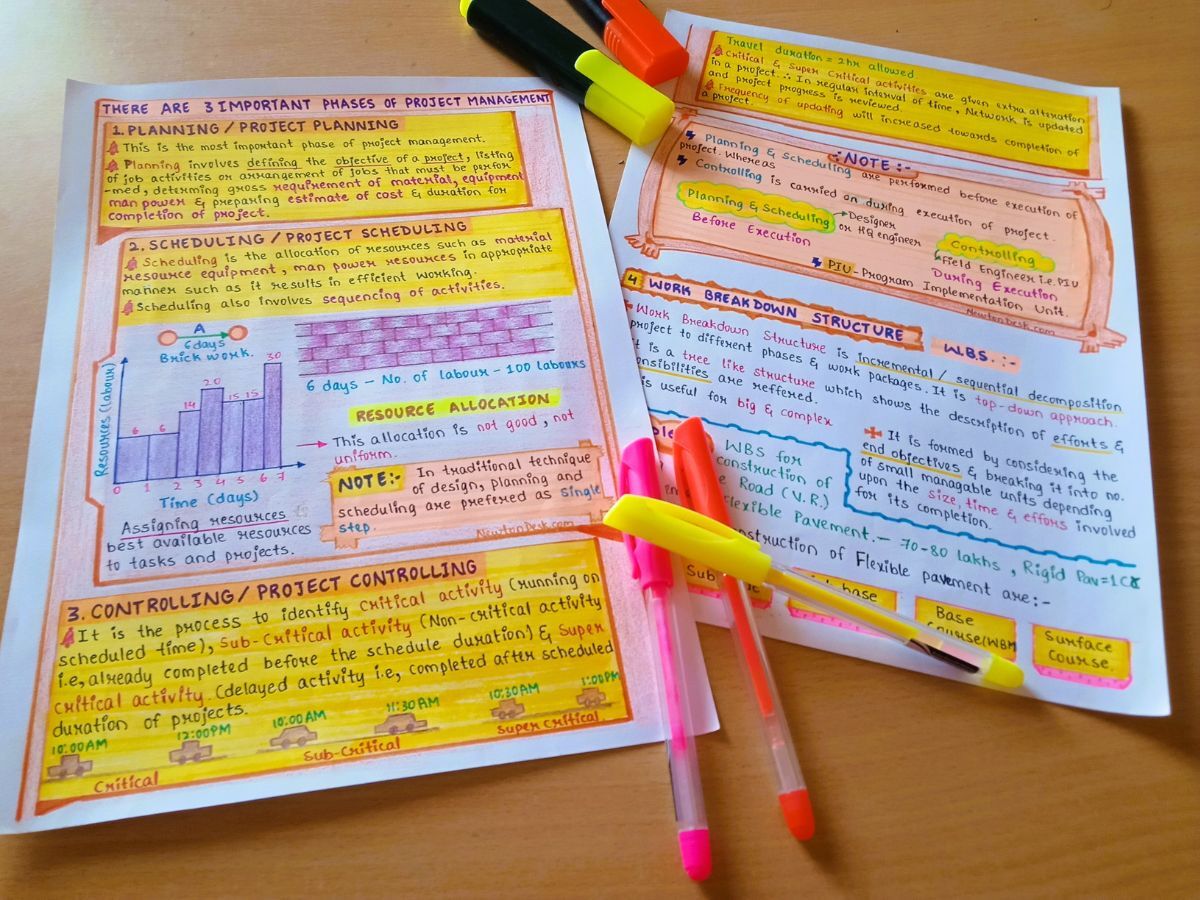 THERE ARE 3 IMPORTANT PHASES OF PROJECT MANAGEMENT
1. PLANNING / PROJECT PLANNING
This is the most important phase of project management.
Planning involves defining the objective of a project, listing
of job activities or arrangement of jobs that must be perfor
-med, determing gross requirement of material, equipment
man power & preparing estimate of cost & duration for
completion of project.
2. SCHEDULING / PROJECT SCHEDULING
Scheduling is the allocation of resources such as material
resource equipment, man power resources in appropriate
manner such as it results in efficient working.
Scheduling also involves sequencing of activities.
A
6 days
Brick work.
6 days - No. of labour - 100 labours
Resources (labour)
6 6 14 20 15 15 30
0 1 2 3 4 5 6 7
Time (days)
RESOURCE ALLOCATION
This allocation is not good, not
uniform.
NOTE:- In traditional technique
of design, planning and
scheduling are prefered as single
step.
NewtonDesk.com
Assigning resources to
best available resources
to tasks and projects.
3. CONTROLLING / PROJECT CONTROLLING
It is the process to identify critical activity (running on
scheduled time), Sub-critical activity (Non-critical activity
i.e, already completed before the schedule duration) & Super
critical activity (delayed activity i.e, completed after scheduled
duration of projects.
10:00AM 12:00PM 10:00AM 11:30AM 10:30AM 1:00PM
Critical Sub-Critical Super Critical
Travel duration = 2hr allowed
Critical & Super Critical activities are given extra attention
in a project. ∴ In regular interval of time, Network is updated
and project progress is reviewed.
Frequency of updating will increased towards completion of
a project.
NOTE:-
Planning & Scheduling are performed before execution of
project. Whereas
Controlling is carried on during execution of project.
Planning & Scheduling → Designer
or HQ engineer
Before Execution
Controlling
Field Engineer i.e. PIU
During Execution
PIU - Program Implementation Unit.
NewtonDesk.com
4 WORK BREAKDOWN STRUCTURE W.B.S. :-
Work Breakdown Structure is incremental / sequential decomposition
project to different phases & work packages. It is top-down approach.
is a tree like structure which shows the description of efforts &
are reffered.
is useful for big & complex
It is formed by considering the
end objectives & breaking it into no.
of small managable units depending
upon the size, time & effors involved
for its completion.
WBS for
construction of
Road (V.R.)
Flexible Pavement. - 70-80 lakhs, Rigid Pav=1CR
of Flexible pavement are:-
Sub
base
Base
Course/WBM
Surface
Course